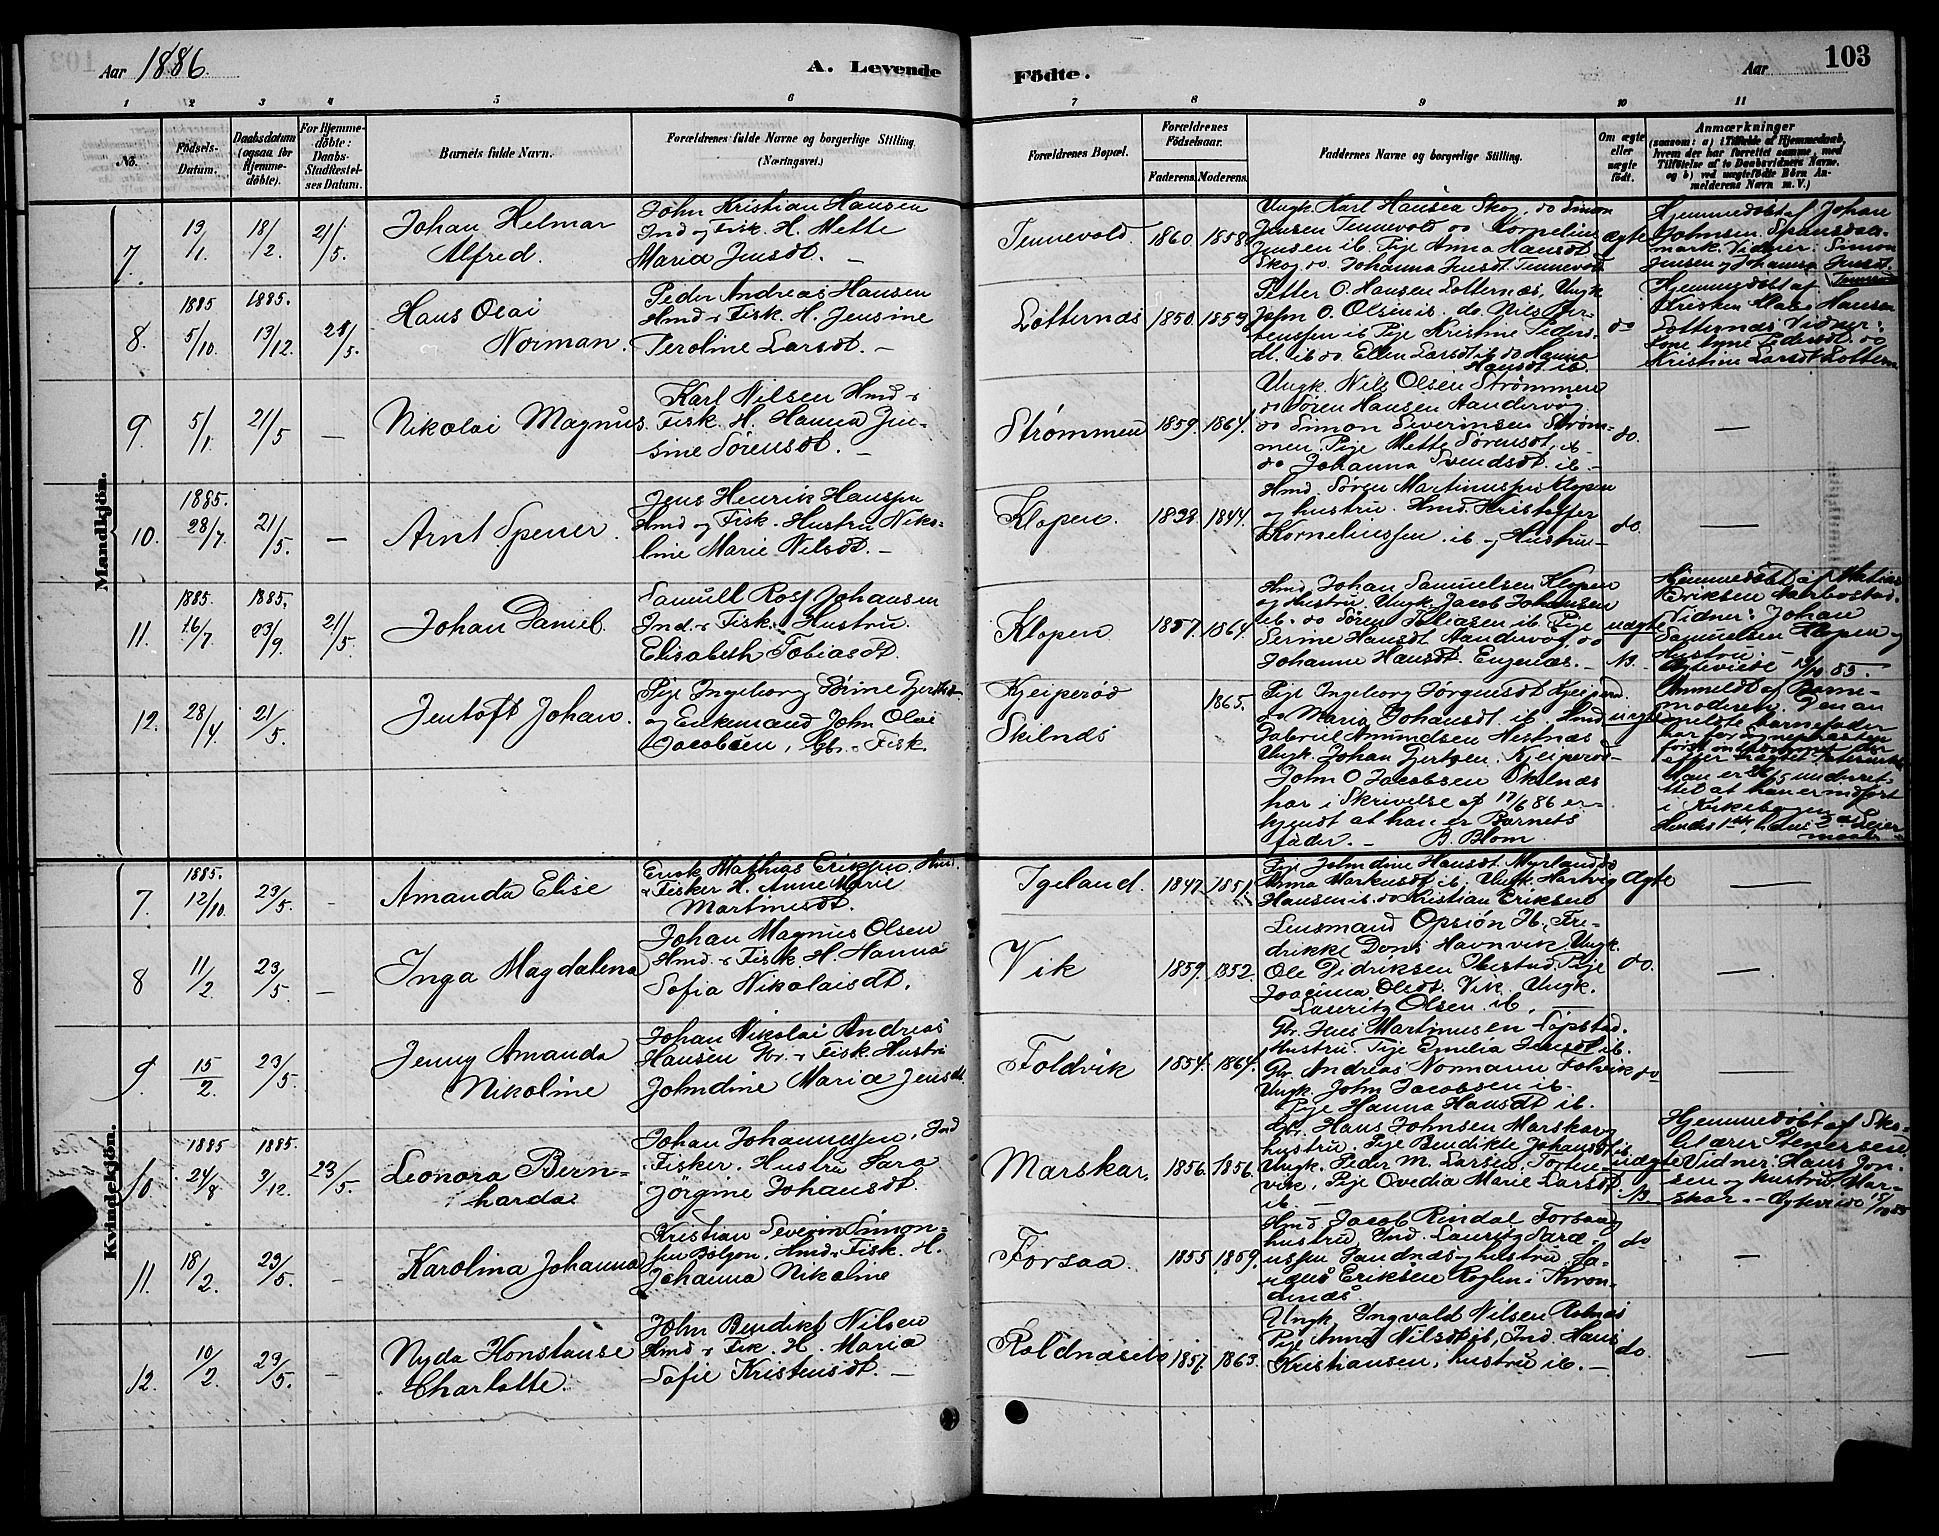 Aar 1886. A. Levende Födte. Aar 103
1 2 3 4 5 6 7 8 9 10 11
No.
Födsels-Datum.
Daabsdatum (ogsaa for Hjemmedöbte).
For Hjemmedöbte: Daabs-Stadfæstelses Datum.
Barnets fulde Navn.
Forældrenes fulde Navne og borgerlige Stilling. (Næringsvei.)
Forældrenes Bopæl.
Forældrenes Födselsaar.
Faderens. Moderens.
Faddernes Navne og borgerlige Stilling.
Om ægte eller uægte født.
Anmærkninger
(saasom: a) i Tilfælde af Hjemmedaab, hvem der har forrettet samme, med Tilföielse af to Daabsvidners Navne, og b) ved uægtefödte Börn Anmelderens Navn m. V.)
Mandkjön.
7. 13/1 18/2 21/5
Johan Helmar
Alfred.
John Kristian Hansen
Ind og Fisk. H. Mette
Maria Jensdt. —
Tennevold. 1860 1858
Ungk. Karl Hansen Skog, do Simon
Jensen Tennevold do Kornelius
Jensen ib. Pije Anna Hansdt
Skog do. Johanna Jensdt Tennevold
ægte
Hjemmedöbt af Johan
Johnsen Spansdals-
mark. Vidner: Simon
Jensen og Johanna Jensdt.
8. 1885 5/10 1885. 13/12. 21/5.
Hans Olai
Norman.
Peder Andreas Hansen
Hmd & Fisk. H. Jensine
Peroline Larsdt. —
Lotternæs 1850. 1859.
Petter O. Hansen Lotternæs, Ungk
John O. Olsen ib. do. Nils Ber-
tenssen ib Pije Kristine Peders-
dt. ib do Ellen Larsdt ib do Hanna
Hansdt ib.
do
Hjemmedöbt af
Lotternæs Vidner:
Kristine Larsdt Lottern
9. 5/1 21/5 —
Nikolai Magnus.
Karl Nilsen Hmd &
Fisk. H. Hanna Jen-
sine Sörensdt. —
Strømmen 1859. 1864.
Ungk. Nils Olsen Strømmen
do Sören Hansen Aandervåg
do Simon Siverinsen Strøm-
men. Pije Mette Sörensdt, ib
do Johanna Svendsdt. ib. —
do. —
10. 1885. 28/7 21/5. —
Arnt Spener.
Jens Henrik Hanssen
Hmd og Fisk. Hustru Niko-
line Marie Nilsdt. —
Klopen. 1828. 1844.
Hmd. Sören Martinussen Klopen
og hustru. Hmd. Kristoffer
Korneliussen. ib. og Hustru—
do. —
11. 1885. 16/7 1885. 23/9. 21/5.
Johan Daniel.
Samuel Rosf Johansen
Ind. & Fisk. Hustru
Elisabeth Tobiasdt.
Klopen 1857. 1864.
Hmd Johan Samuelsen Klopen
og Hustru. Ungk. Jacob Johansen
ib. do Sören Tobiasen ib. Pije
Serine Hansdt Aandervåg, do
Johanne Hansdt. Engenæs. —
uægte
NB.
Hjemmedöbt af Matias
Eriksen Aarbostad.
Vidner: Johan
Samuelsen Klopen og
Hustru. —
Ægteviede 15/10 85.
12. 28/4 21/5.
Jentoft Johan.
Pije Ingeborg Perine Gertsdt
og Enkemand John Olai
Jacobsen, Gbr. & Fisk.
Kjeiperød
Skilnæs
1865.
Pije Ingeborg Jörgensdt Kjeiperød
do Maria Johansdt ib. Hmd
Gabriel Amundsen Hestnæs
Ungk. Johan Gertsen. Kjeiperød—
John O Jacobsen Skilnæs
har i Skrivelse af 17/6 86 er-
kjendt at han er Barnets
fader. — B. Blom
uægte
Anmeldt af Barne-
moderen. Den an
meldte barnefader
Han er 26/5 underret-
tet at han er indført
i Kirkebogen
Kvindekjön.
7. 1885. 12/10. 23/5. —
Amanda Elise
Erick Mathias Eriksen Hmd.
& Fisker H. Anne Marie
Martinusdt.
Igeland. 1847. 1851.
Pije Johndine Hansdt. Myrland do
Anna Markusdt ib. Ungk Hartvig
Hansen ib. do Kristian Eriksen
Ægte —
8 11/2 23/5. —
Inga Magdalena
Johan Magnus Olsen
Hmd. & Fisk. H. Hanna
Sofia Nikolaisdt.
Vik 1859. 1852.
Lensmand Opsiön Ib., Fre-
drikke Dons Havnvik. Ungk.
Ole Didriksen Ibestad. Pije
Joacima Olsdt. Vik. Ungk.
Lauritz Olsen ib.
do. —
9. 15/2. 23/5.
Jenny Amanda
Nikoline
Johan Nikolai Andreas
Hansen Gbr. & Fisk. Hustru
Johndine Maria Jensdt
Foldvik 1854. 1864.
Gbr. Jens Martinusen Löpstad.
Hustru. Pije Emelia Jensdt ib.
Gbr. Andreas Normann Folvik
Ungk. John Jacobsen ib—
Pije Hanna Hansdt ib.
do
10 1885 24/8 1885. 3/12. 23/5.
Leonora Bern-
harda
Johan Johannessen, Ind
Fisker. Hustru Sara
Jörgine Johansdt.
Marskar. 1856. 1856.
Gbr. Hans Johnsen Marskar og
hustru. Pije Bendikte Johansdt ib.
Ungk. Peder M. Larsen, Forten-
vik. Pije Ovedia Marie Larsdt
ib —
uægte
NB
Hjemmedöbt af Sko-
lelærer Stenersen
Vidner: Hans Jon-
sen og hustru Mar-
skar. — Ægteviede 15/10 85
11. 18/2. 23/5. —
Karolina Johanna
Kristian Severin Simon-
sen Bolgon. Hmd. & Fisk. H.
Johanna Nikoline
Forsaa. 1855 1859.
Hmd. Jacob Rindal Forsaa og
hustru Ind. Lauritz Saræ-
ussen Sandnæs og hustru. Sa-
ræus Eriksen Roglen i Thron-
denæs.
do —
12. 10/2. 23/5. —
Nyda Konstanse
Charlotte.
John Bendikt Nilsen
Hmd & Fisk. H. Maria
Sofie Kristensdt. —
Roldnæsets 1857. 1863.
Ungk. Ingvald Nilsen Rotnæs
Pije Anna Nilsdt ib, Ind. Hans
Kristiansen, hustru ib. —
do. —